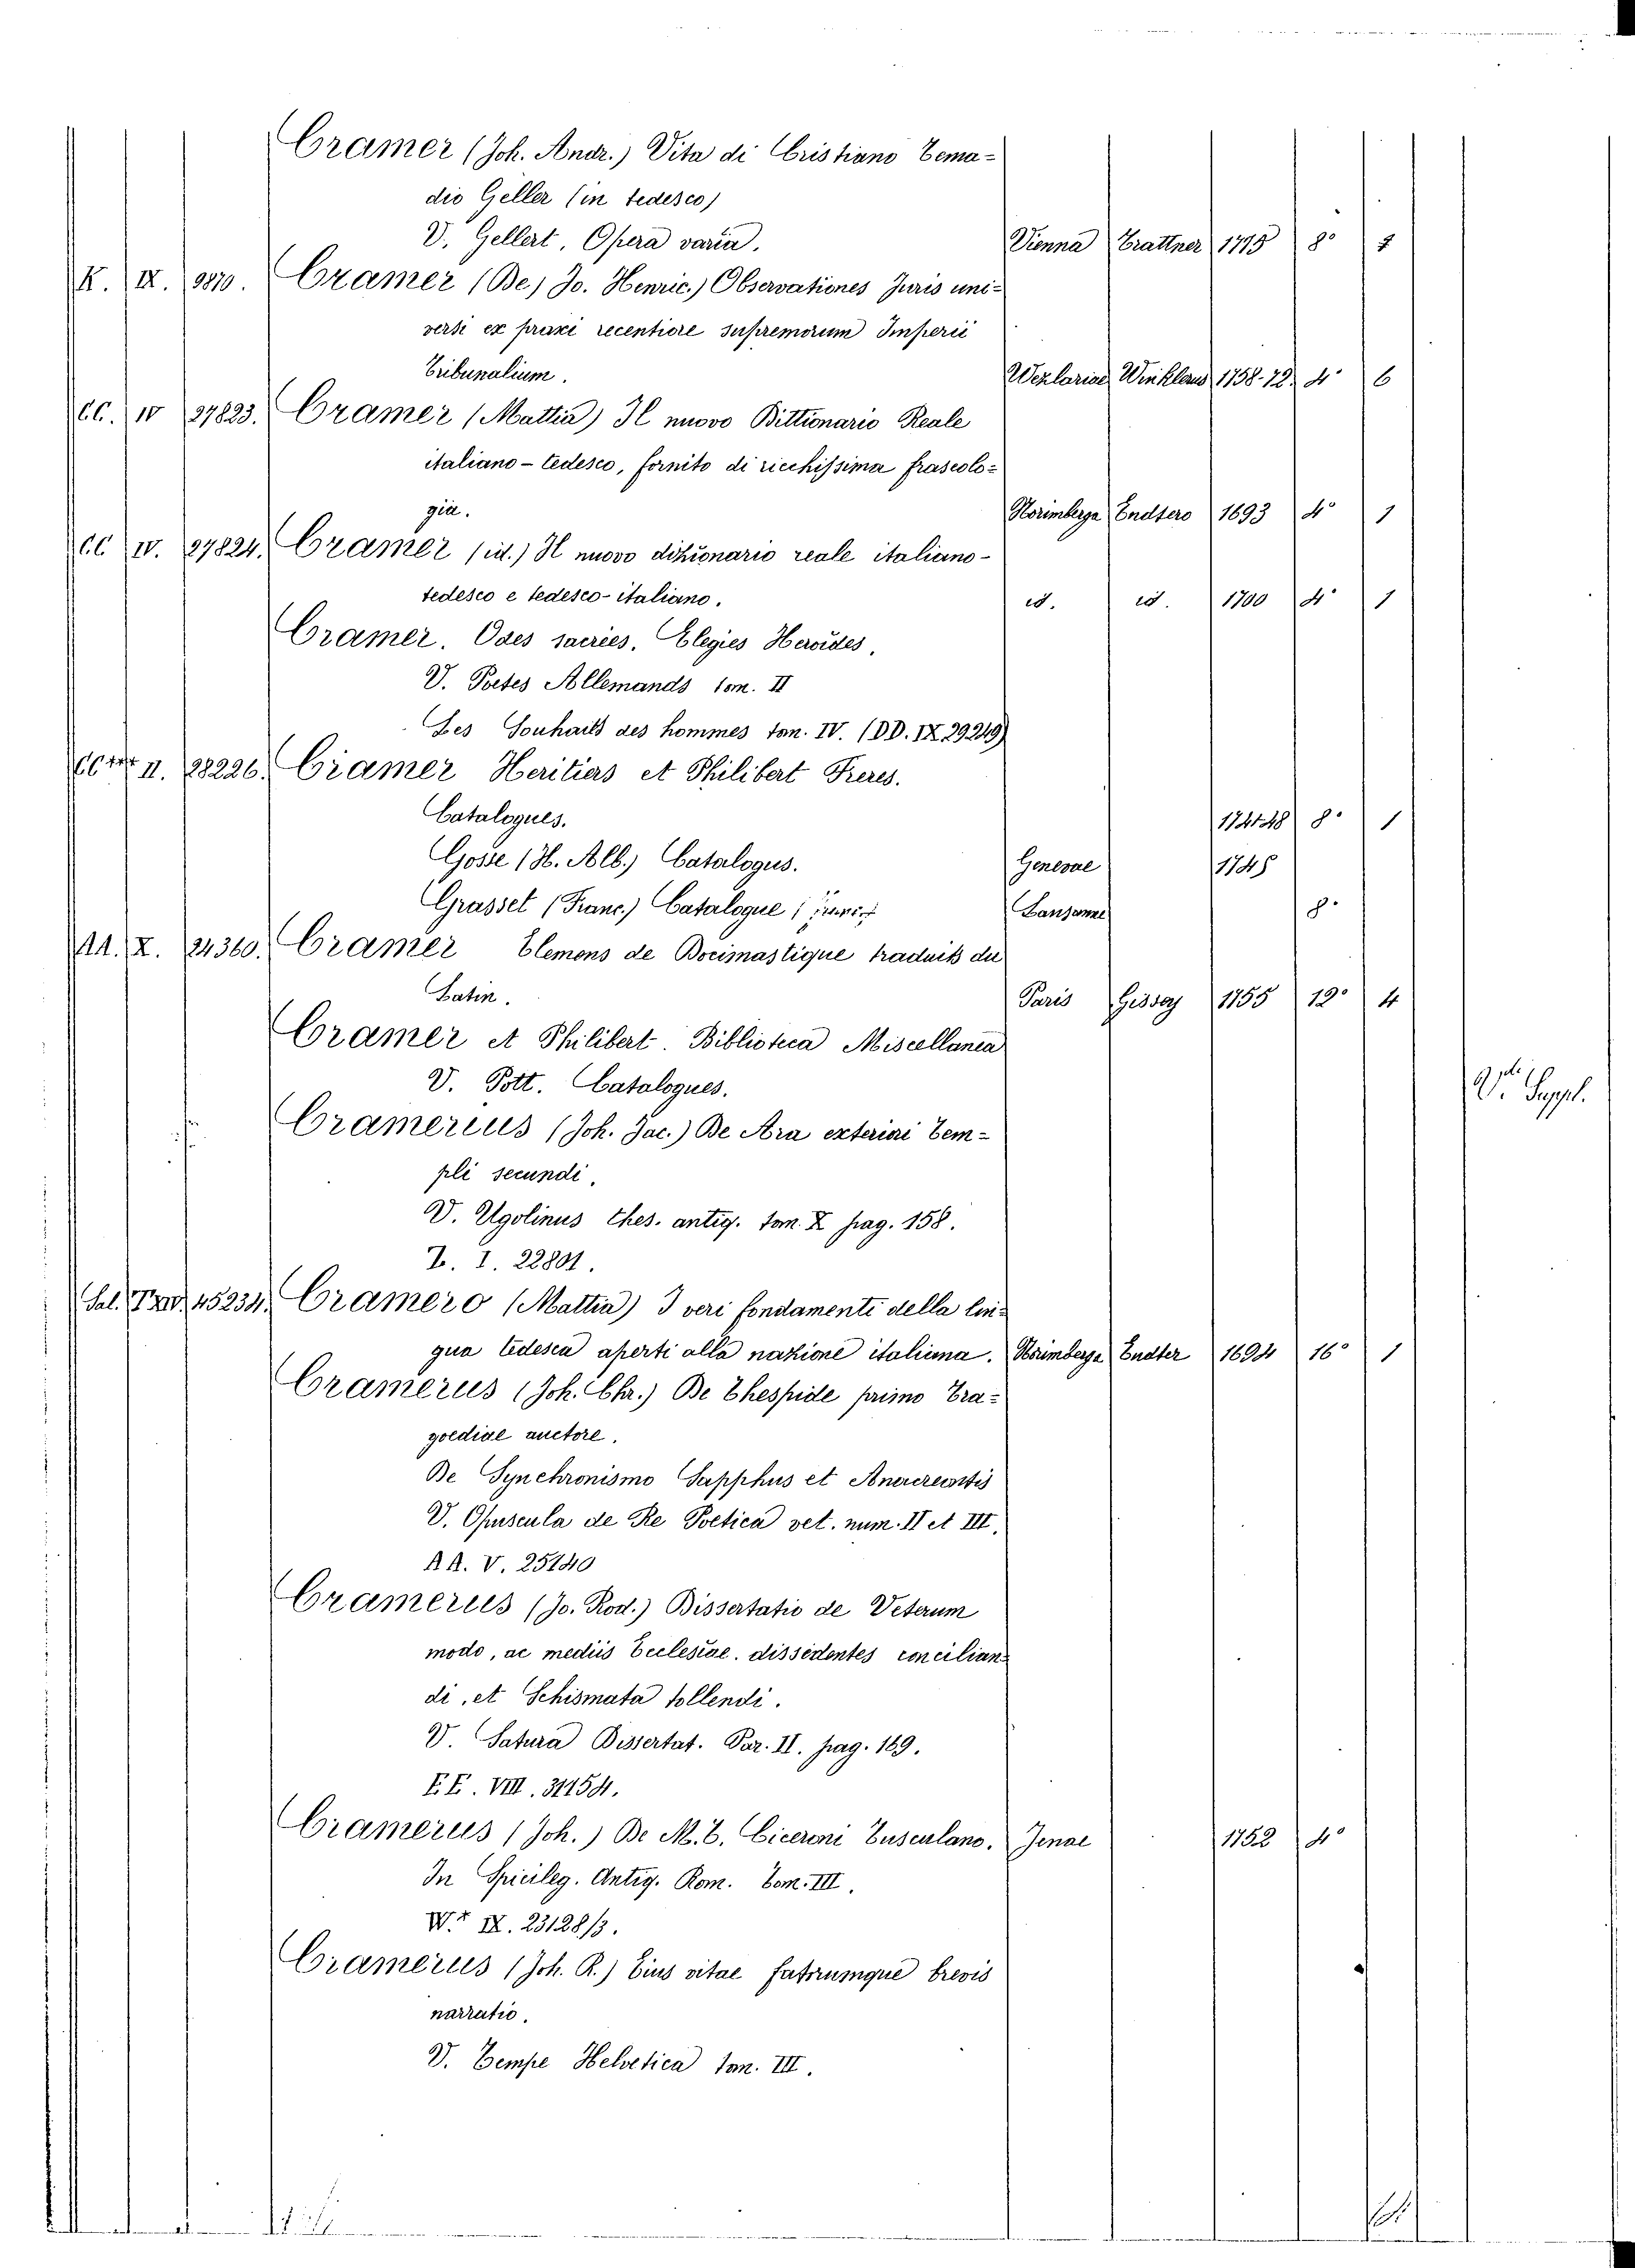 Cramer (Joh. Andr.) Vita di Cristiano Tema-
dio Geller (in tedesco)
V. Gellert, Opera varia. Vienna Trattner 1775 8°
K. IX. 9870. Cramer (De) Jo. Henric.) Observationes Juris uni-
versi ex praxi recentiore supremorum Imperii
Tribunalium. Wezlariae Winklerus 1758-72. 4° 6
CC. IV 27823. Cramer (Mattia) Il nuovo Dittionario Reale
italiano-tedesco, fornito di ricchissima fraseolo-
gia. Norimberga Endtero 1693 4° 1
CC IV. 27824. Cramer (id.) Il nuovo dizionario reale italiano-
tedesco e tedesco-italiano. id. id. 1700 4° 1
Cramer. Odes sacrées. Elegies Heroides.
V. Poetes Allemands tom. II
Les Souhaits des hommes tom. IV. (DD. IX. 29249)
II. 28226. Cramer Heritiers et Philibert Freres.
Catalogues. 8° 1
Gosse (H. Alb.) Catalogus. Genevae 1745
Grasset (Franc.) Catalogue Lausanne 8°
AA. X. 24360. Cramer Elemens de Docimastique traduits du
Latin. Paris 1755 12° 4
Cramer et Philibert. Biblioteca Miscellanea
V. Pott. Catalogues. V. Suppl.
Cramerius (Joh. Jac.) De Ara exteriori Tem-
pli secundi.
V. Ugolinus thes. antiq. tom. X pag. 158.
Z. I. 22801.
Sal. 45234. Cramero (Mattia) I veri fondamenti della lin-
gua tedesca aperti alla nazione italiana. Norimberga Endter 1694 16° 1
Cramerus (Joh. Chr.) De Thespide primo Tra-
goediae auctore.
De Synchronismo Sapphus et Anacreontis
V. Opuscula de Re Poetica vet. num. II et III.
AA. V. 25140
Cramerus (Jo. Rod.) Dissertatio de Veterum
modo, ac mediis Ecclesiae dissidentes concilian-
di, et Schismata tollendi.
V. Satura Dissertat. Par. II. pag. 169.
EE. VIII. 31154.
Cramerus (Joh.) De M. T. Ciceroni Tusculano. Jenae 1752 4°
In Spicileg. Antiq. Rom. Tom. III.
W.* IX. 23128/3.
Cramerus (Joh. R.) Eius vitae fatorumque brevis
narratio.
V. Tempe Helvetica tom. III.